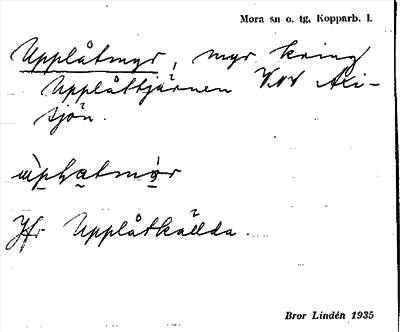 Mora sn o. tg. Kopparb. l.
Upplåtmyr, myr kring
Upplåttjärnen VNV Axi-
sjön.
Jfr Upplåtkällda.
Bror Lindén 1935